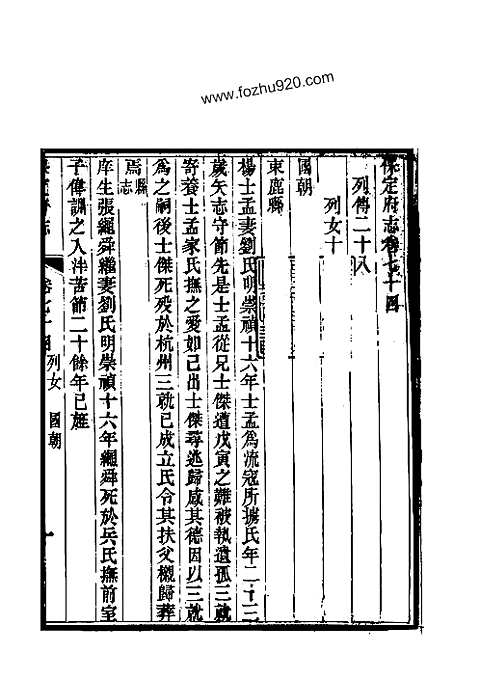 www.fozhu920.com
保定府志卷七十四
列傳二十八
列女十
國朝
束鹿縣
楊士孟妻劉氏明崇禎十六年士孟爲流寇所擄氏年二十三
歲矢志守節先是士孟從兄士傑遭戊寅之難被執遺孤三就
寄養士孟家氏撫之愛如己出士傑尋逃歸感其德因以三就
爲之嗣後士傑死歿於杭州三就已成立氏令其扶父櫬歸葬
焉縣志
庠生張繩舜繼妻劉氏明崇禎十六年繩舜死於兵氏撫前室
子傳淵之入泮苦節二十餘年已旌
卷七十四 列女 國朝 一